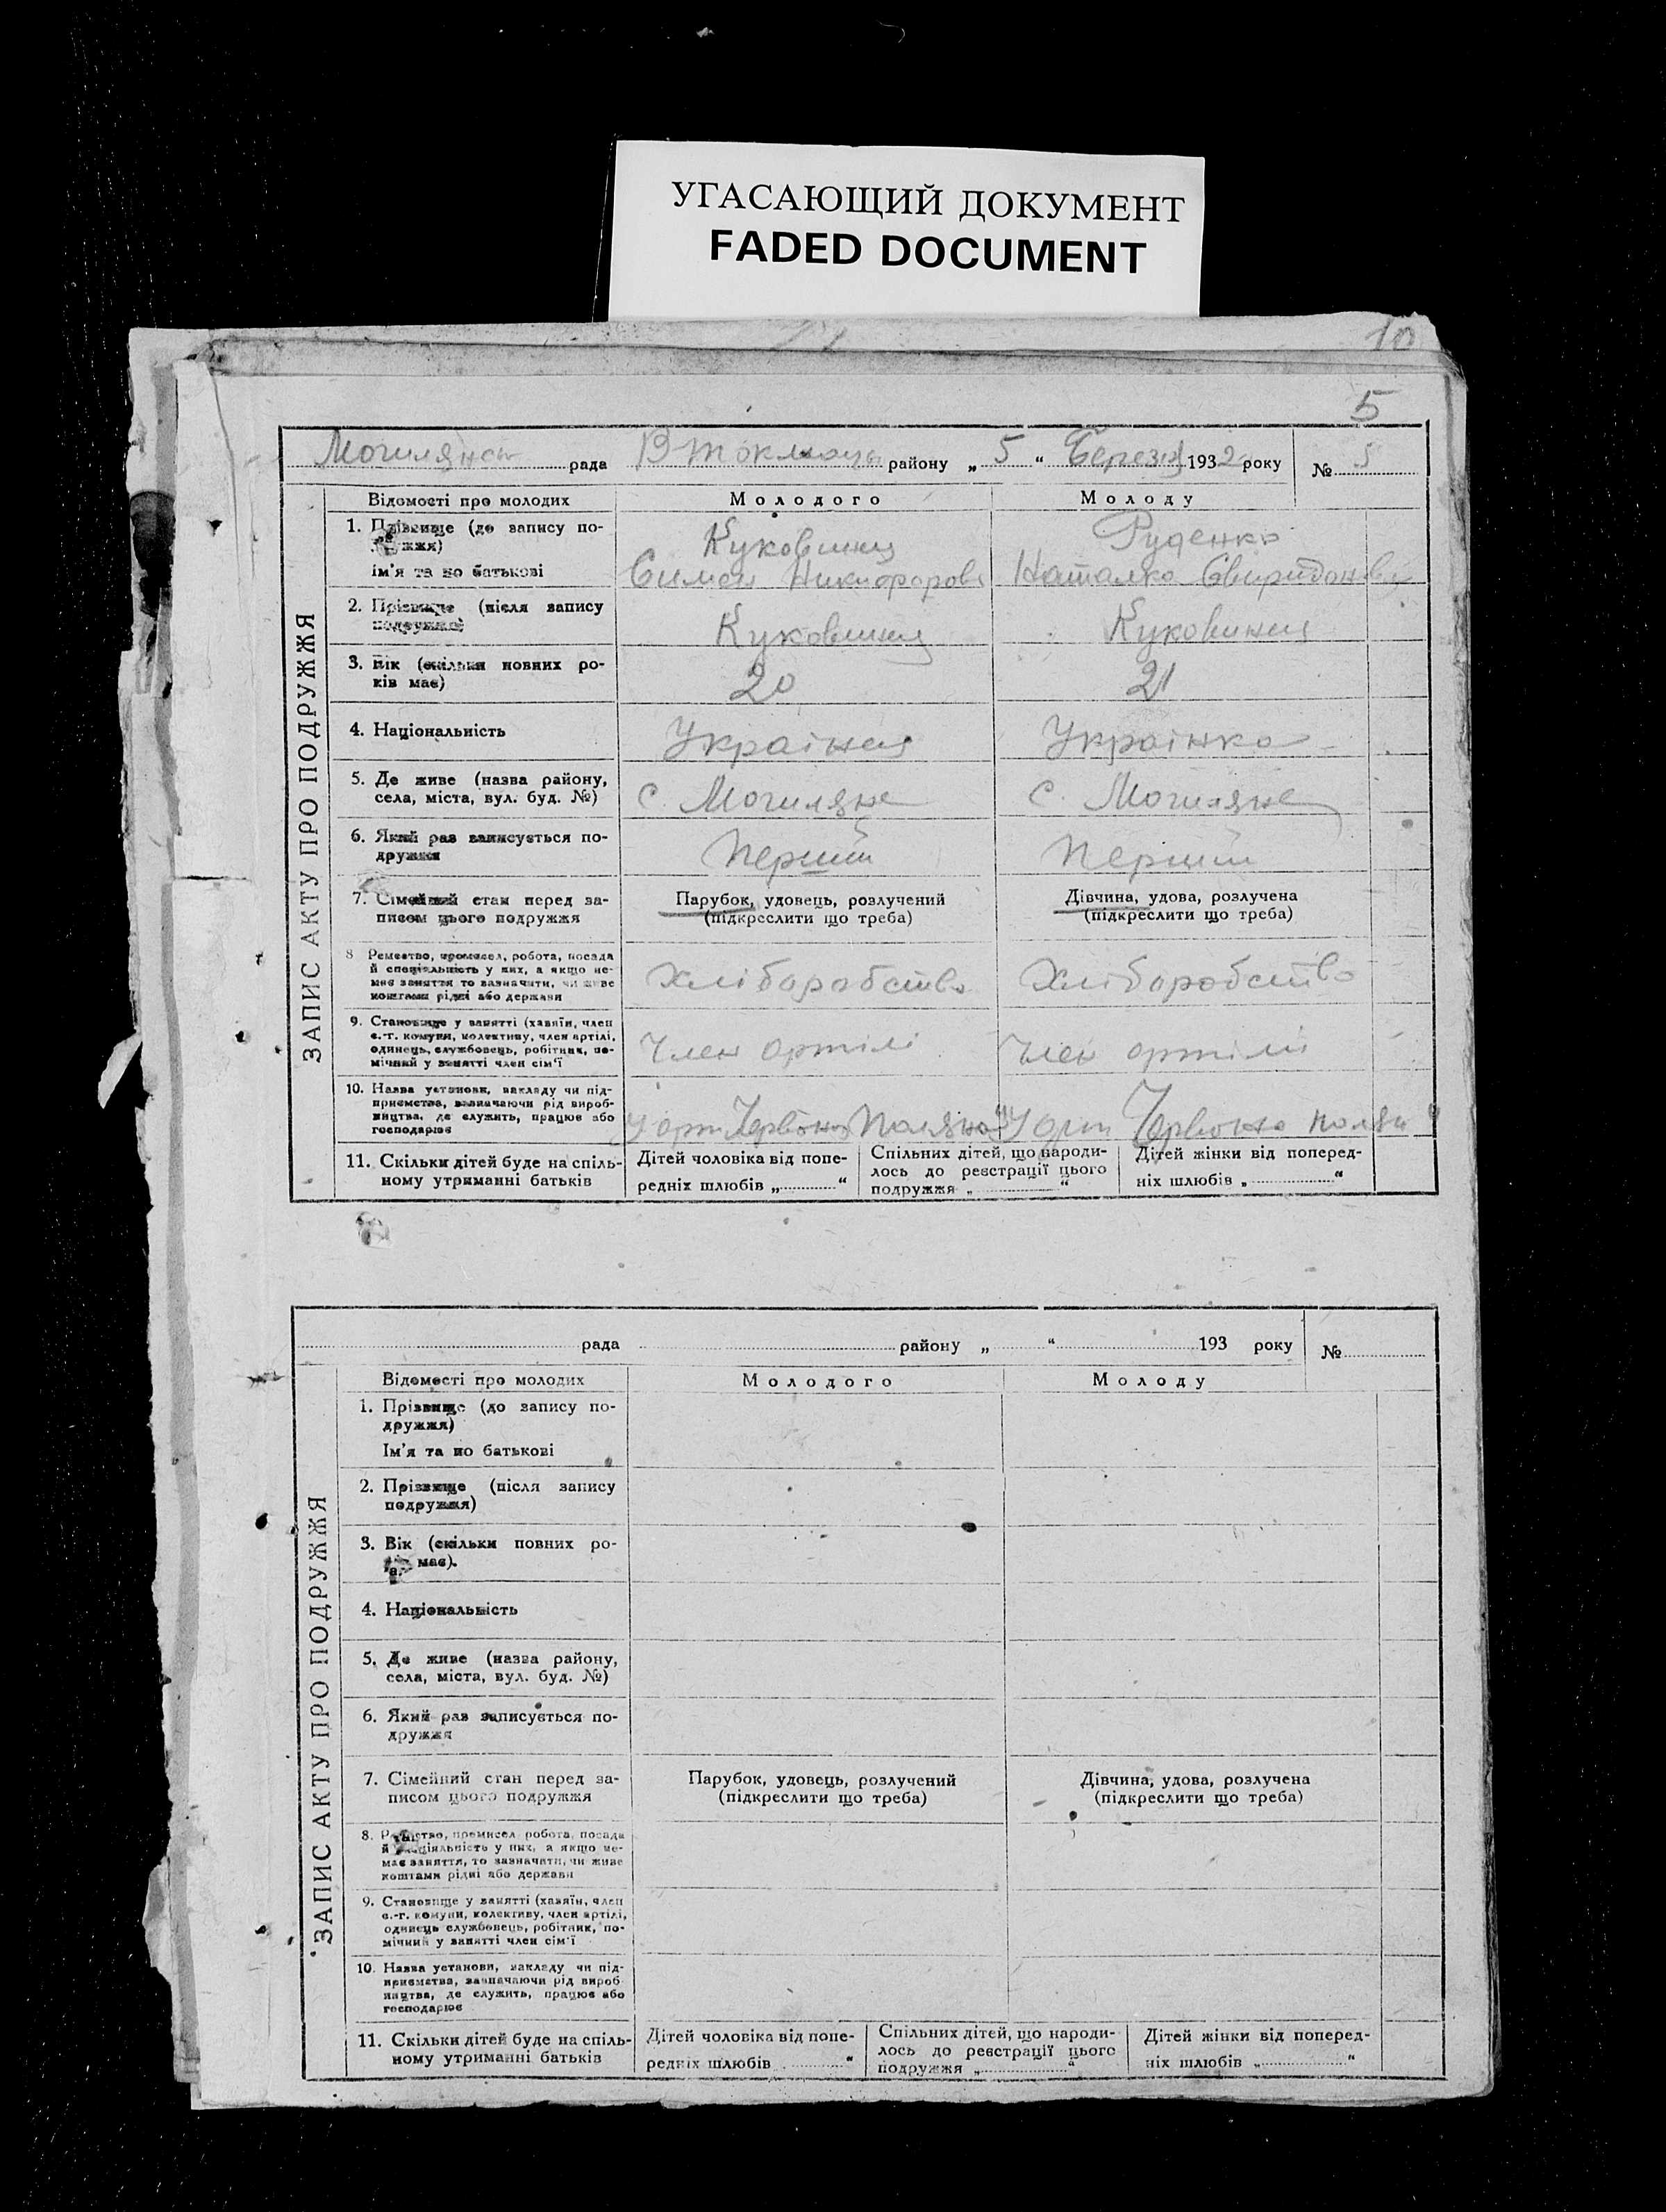 УГАСАЮЩИЙ ДОКУМЕНТ
FADED DOCUMENT
10
5
рада В Токмаць району „ 5 “ Березня 1932 року № 5
ЗАПИС АКТУ ПРО ПОДРУЖЖЯ
Відомості про молодих Молодого Молоду
1. Прізвище (до запису по-
дружжя) Руденко
Ім'я та по батькові Никифоров Наталка Свиридонів
2. Прізвище (після запису
подружжя)
3. Вік (скільки повних ро-
ків має) 20 21
4. Національність Українець Українка
5. Де живе (назва району,
села, міста, вул. буд. №) с. Могиляне с. Могиляне
6. Який раз записується по-
дружжя Перший Перший
7. Сімейний стан перед за-
писом цього подружжя
Парубок, удовець, розлучений
(підкреслити що треба)
Дівчина, удова, розлучена
(підкреслити що треба)
8 Ремество, промисел, робота, посада
й спеціяльність у них, а якщо не-
має заняття то зазначити, чи живе
коштами рідні або держави
Хліборобство Хліборобство
9. Становище у занятті (хазяїн, член
с.-г. комуни, колективу, член артілі,
одинець, службовець, робітник, по-
мічний у занятті член сім'ї
Член артілі Член артілі
10. Назва установи, закладу чи під-
приємства, зазначаючи рід вироб-
ництва, де служить, працює або
господарює
У арт Червона Поляна У арт Червона поляна
11. Скільки дітей буде на спіль-
ному утриманні батьків
Дітей чоловіка від попе-
редніх шлюбів „ “
Спільних дітей, що народи-
лось до реєстрації цього
подружжя „ “
Дітей жінки від поперед-
ніх шлюбів „ “
рада району „ “ 193 року №
ЗАПИС АКТУ ПРО ПОДРУЖЖЯ
Відомості про молодих Молодого Молоду
1. Прізвище (до запису по-
дружжя)
Ім'я та по батькові
2. Прізвище (після запису
подружжя)
3. Вік (скільки повних ро-
має).
4. Національність
5. Де живе (назва району,
села, міста, вул. буд. №)
6. Який раз записується по-
дружжя
7. Сімейний стан перед за-
писом цього подружжя
Парубок, удовець, розлучений
(підкреслити що треба)
Дівчина, удова, розлучена
(підкреслити що треба)
8. Ремество, промисел робота, посада
й спеціяльність у них, а якщо не-
має заняття, то зазначати, чи живе
коштами рідні або держави
9. Становище у занятті (хазяїн, член
с.-г. комуни, колективу, член артілі,
одинець службовець, робітник, по-
мічний у занятті член сім'ї
10. Назва установи, закладу чи під-
приємства, зазначаючи рід вироб-
ництва, де служить, працює або
господарює
11. Скільки дітей буде на спіль-
ному утриманні батьків
Дітей чоловіка від попе-
редніх шлюбів „ “
Спільних дітей, що народи-
лось до реєстрації цього
подружжя „ “
Дітей жінки від поперед-
ніх шлюбів „ “